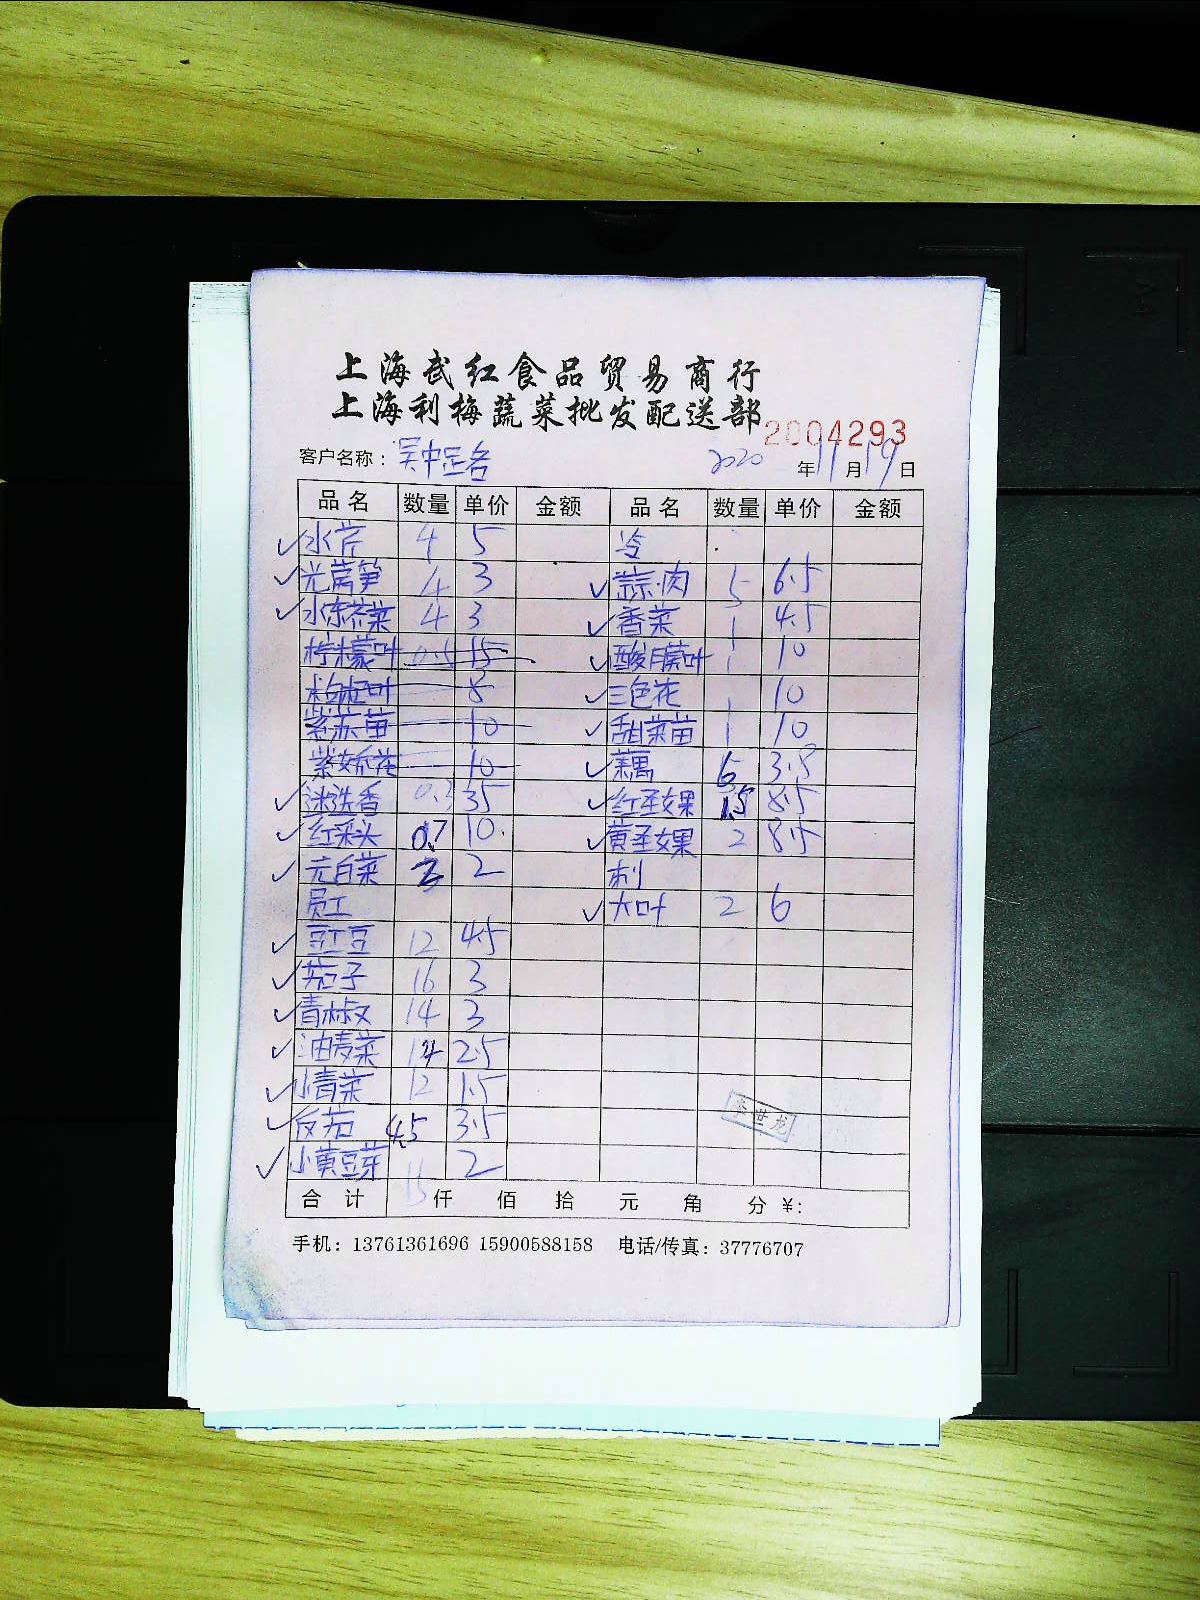 上海武红食品贸易商行
上海利梅蔬菜批发配送部
2004293
客户名称：吴中 2020年11月19日
品名 数量 单价 金额 品名 数量 单价 金额
✓水芹 4 5 冷
✓光莴笋 4 3 ✓蒜肉 5 6.5
✓水东芥菜 4 3 ✓香菜 1 4.5
柠檬叶 0.5 15 ✓酸膜叶 1 10
叶 8 ✓三色花 1 10
紫苏苗 10 ✓甜菜苗 1 10
紫娇花 10 ✓藕 6 3.5
✓迷迭香 0.3 35 ✓红圣女果 1.5 8.5
✓红菜头 0.7 10 ✓黄圣女果 2 8.5
✓元白菜 2 刺
员工 ✓大叶 2 6
✓豇豆 12 4.5
✓茄子 16 3
✓青椒 14 3
✓油麦菜 14 2.5
✓小青菜 12 1.5
✓反茄 4.5 3.5
✓小黄豆芽 15 2
李世龙
合计 仟 佰 拾 元 角 分 ¥:
手机：13761361696 15900588158 电话/传真：37776707